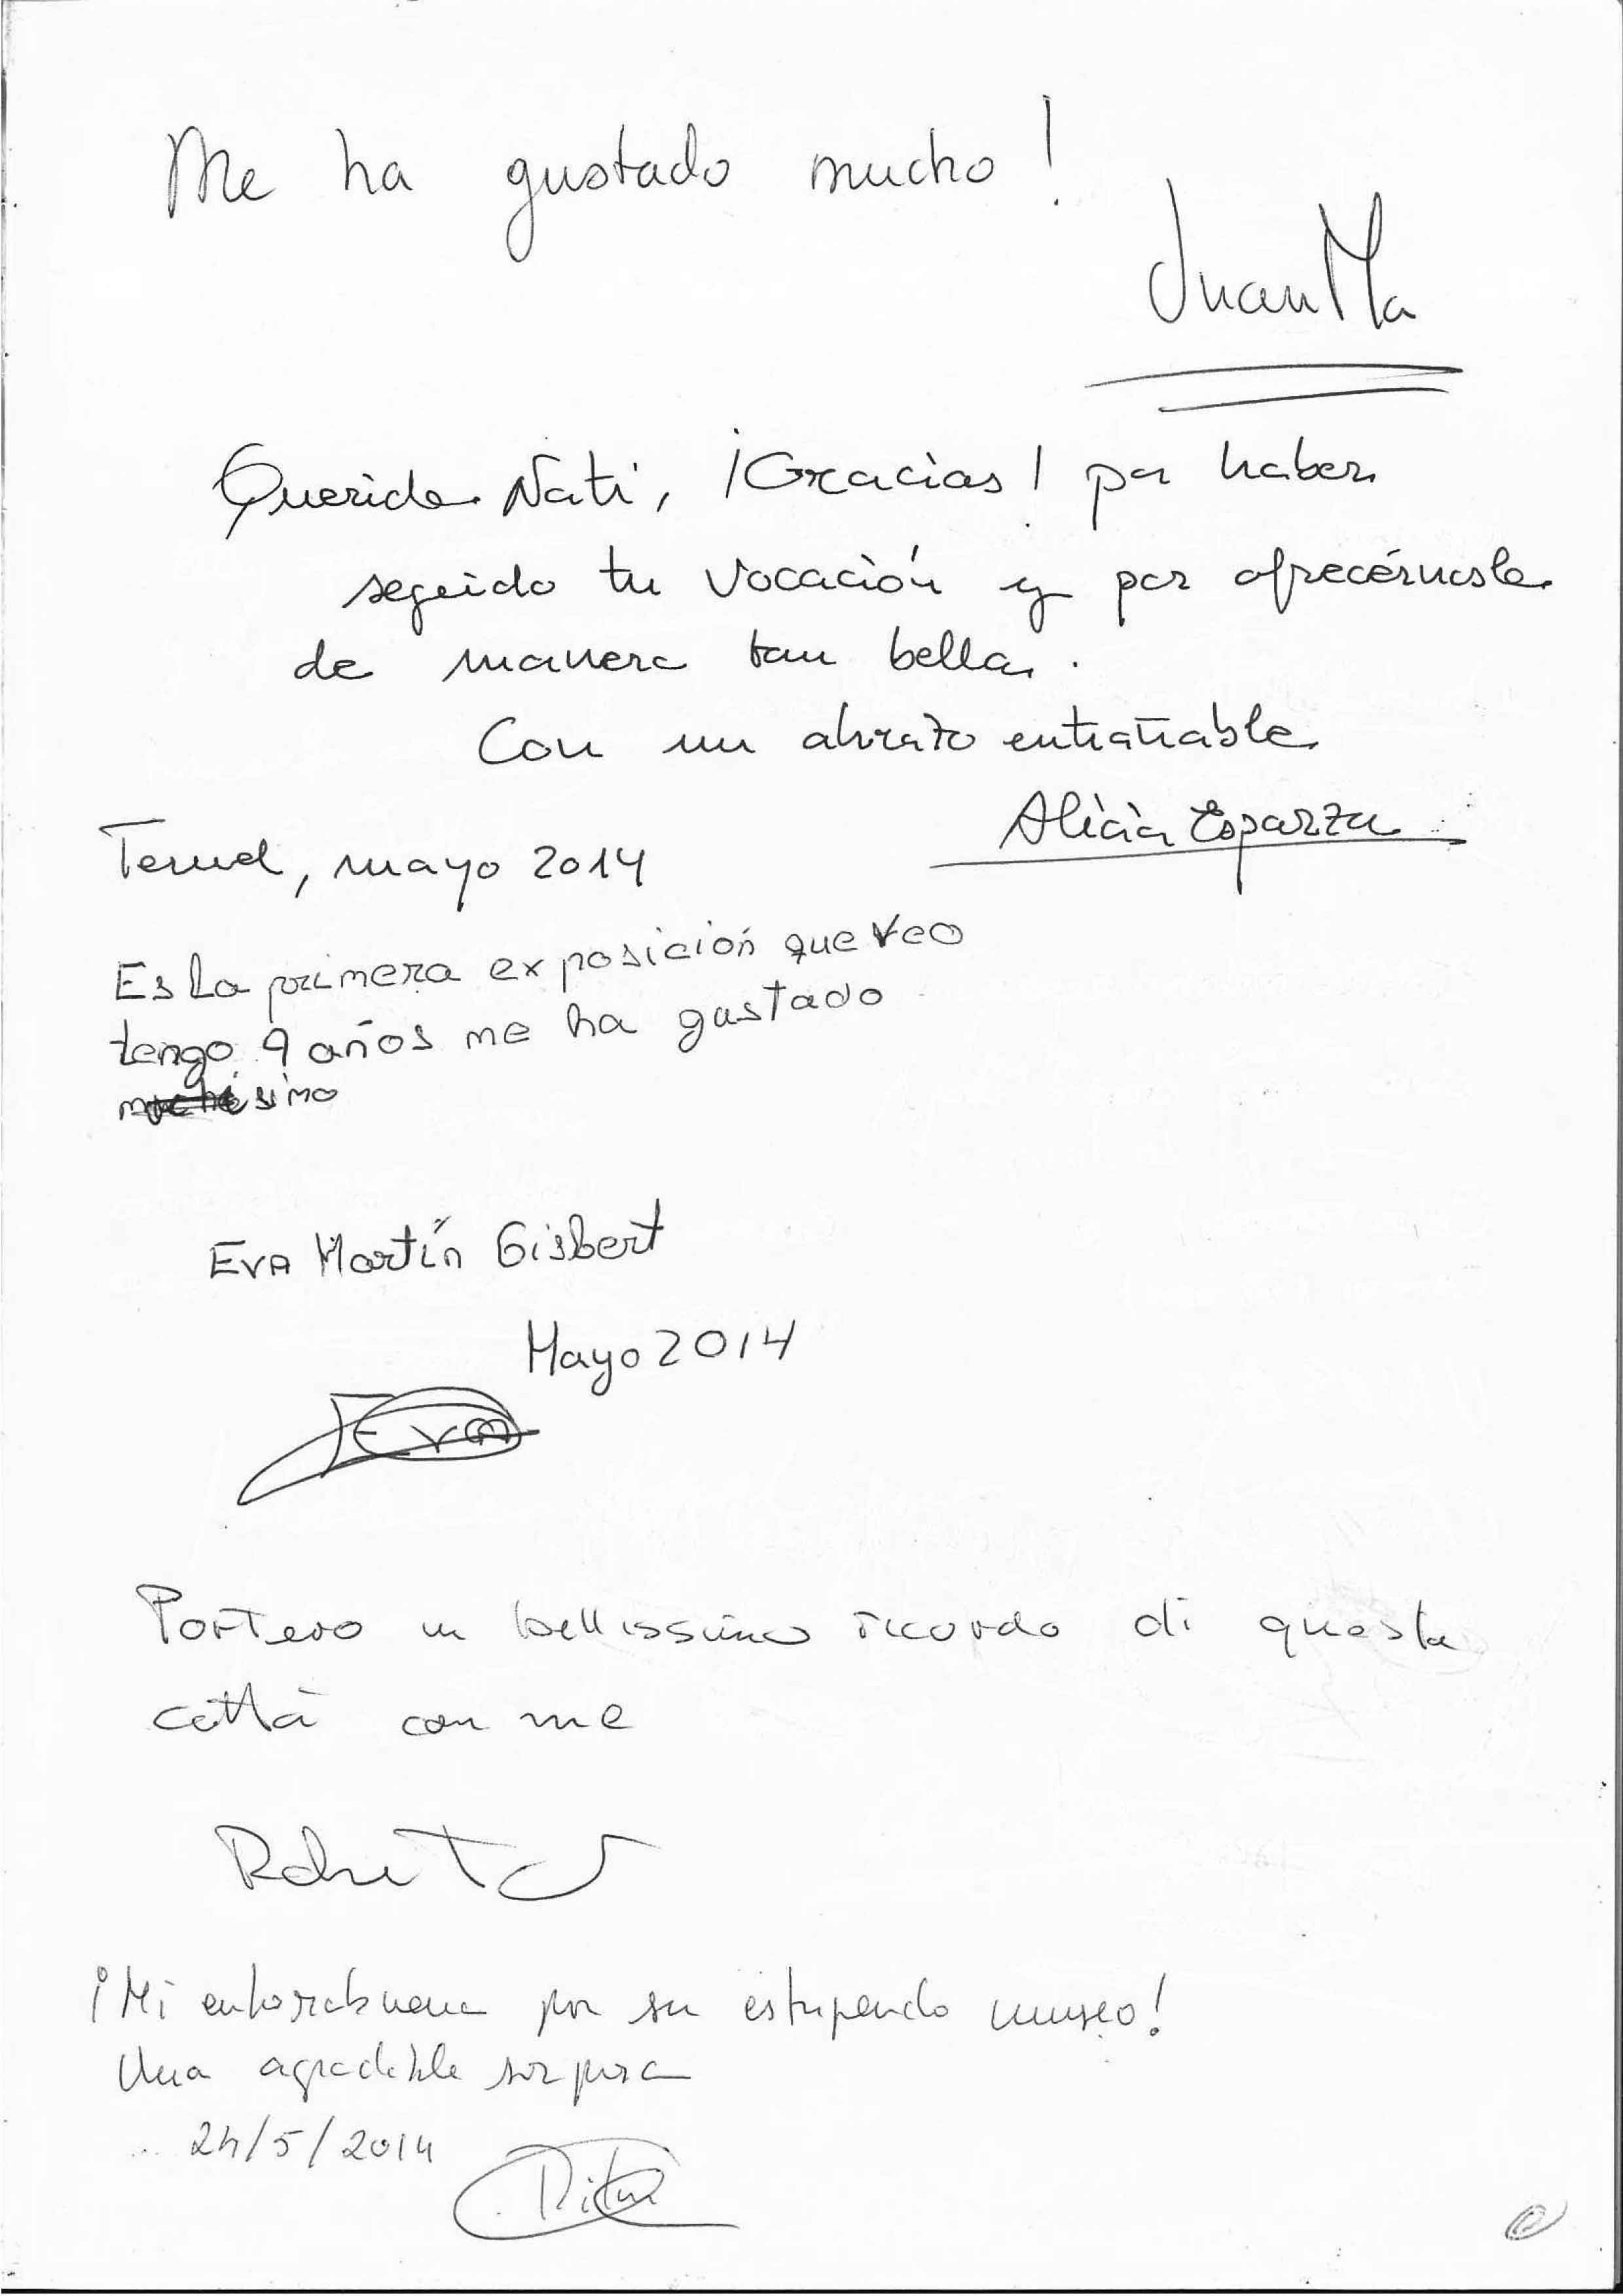 Me ha gustado mucho!
JuanMa
Querida Nati, ¡Gracias! por haber
seguido tu vocación y por ofrecérnosla
de manera tan bella.
Con un abrazo entrañable
Alicia Esparza
Teruel, mayo 2014
Es la primera exposición que veo
tengo 9 años me ha gustado
muchísimo
Eva Martín Gisbert
Mayo 2014
Eva
Porterò un bellissimo ricordo di questa
città con me
¡Mi enhorabuena por su estupendo museo!
Una agradable sorpresa
24/5/2014